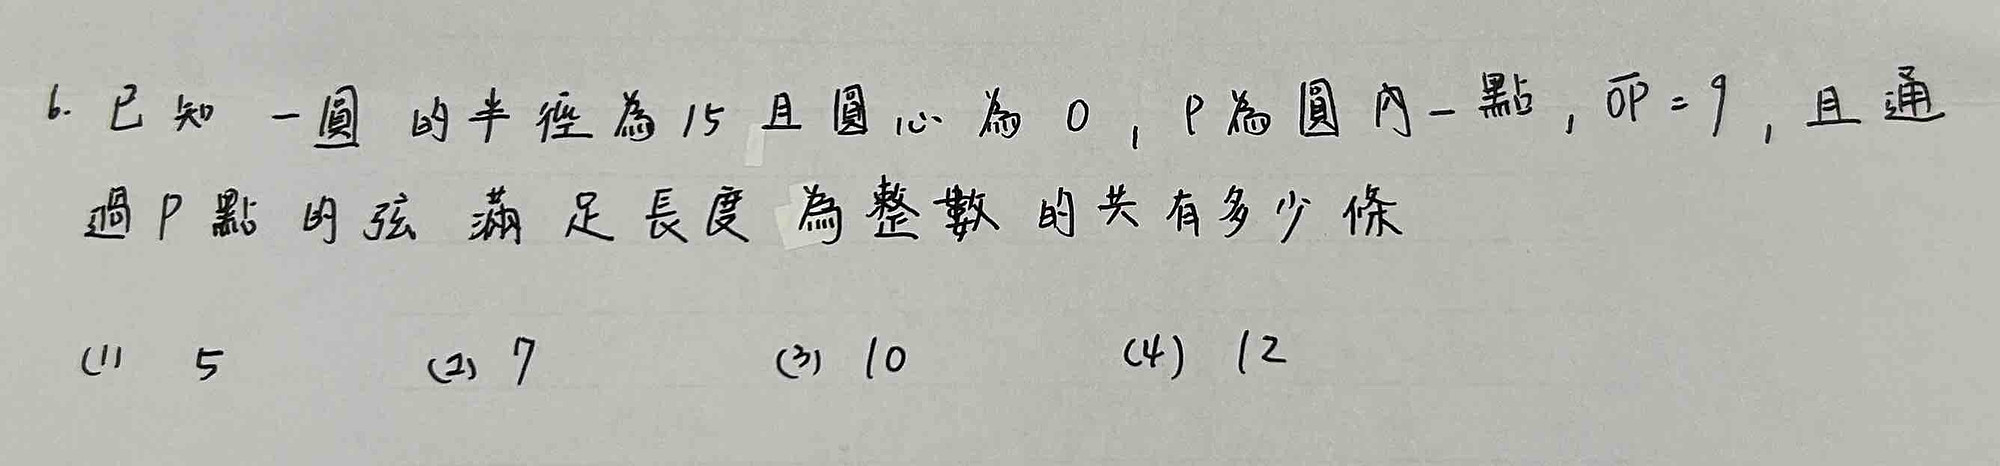 6. 已知一圓的半徑為15且圓心為O,P為圓內一點,OP=9,且通
過P點的弦滿足長度為整數的共有多少條
(1) 5 (2) 7 (3) 10 (4) 12